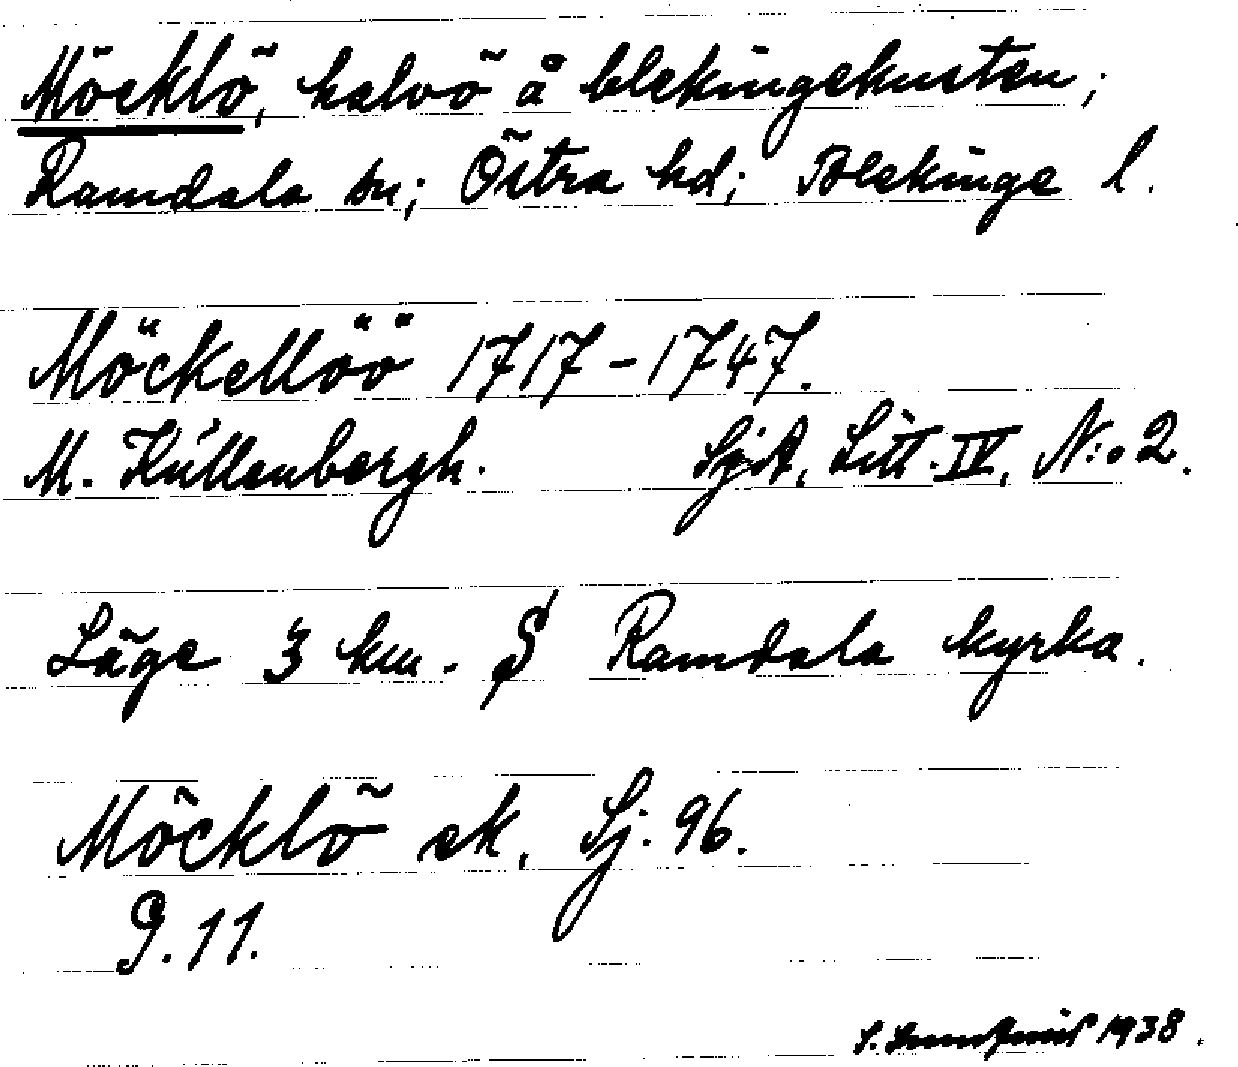 Möcklö, halvö å blekingekusten;
Ramdala sn; Östra hd; Blekinge l.
Möckellöö 1717-1747.
M. Küllenbergh. SjA, Litt. IV, N:o 2.
Läge 3 km. S Ramdala kyrka.
Möcklö ek. Sj. 96.
9.11.
S. 1938.